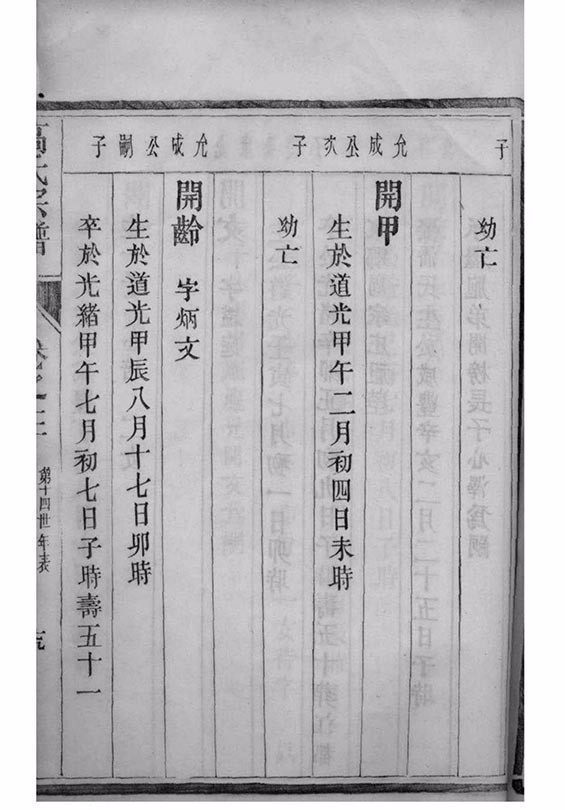 子
幼亡
允成公次子
開甲
生於道光甲午二月初四日未時
幼亡
允成公嗣子
開齡 字炳文
生於道光甲辰八月十七日卯時
卒於光緒甲午七月初七日子時壽五十一
氏宗譜
第十四世年表